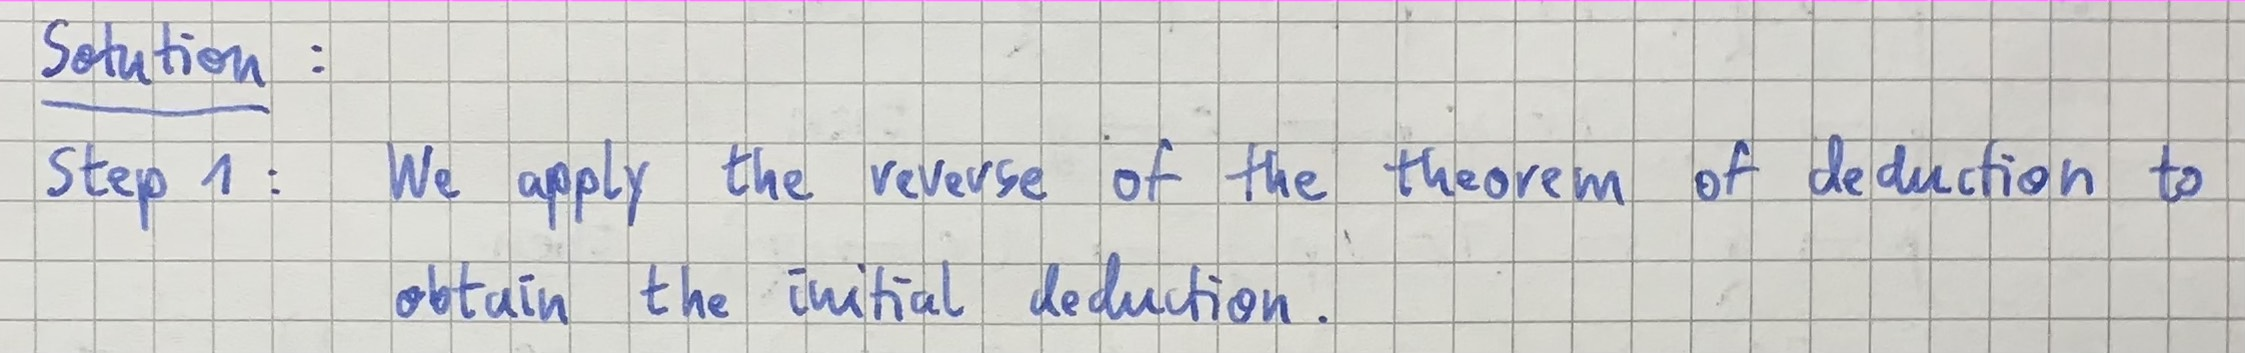 Solution :
Step 1 : We apply the reverse of the theorem of deduction to
obtain the initial deduction.